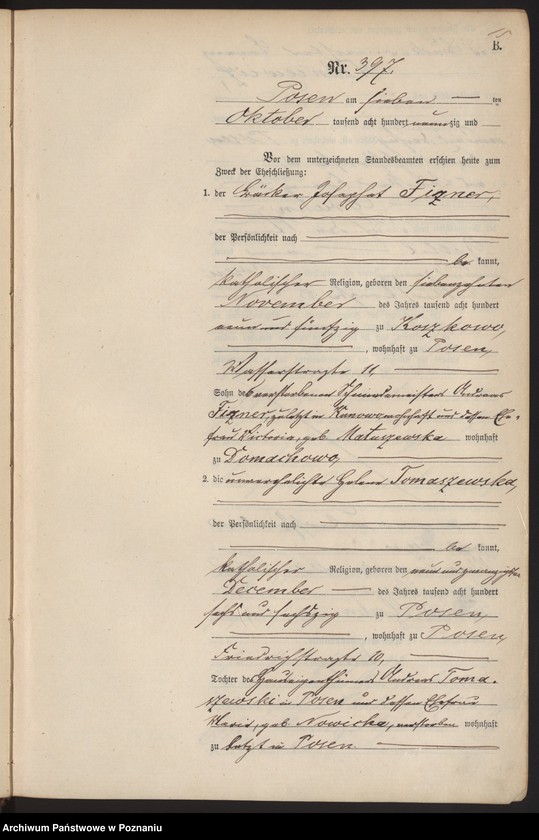 B.
Nr. 397.
Posen am sieben ten
Oktober tausend acht hundert neunzig und
Vor dem unterzeichneten Standesbeamten erschien heute zum
Zweck der Eheschließung:
1. der Bäcker Josaphat Fizner,
der Persönlichkeit nach
be kannt,
katholischer Religion, geboren den siebenzehnten
November des Jahres tausend acht hundert
neun und fünfzig zu Koszkowo,
, wohnhaft zu Posen,
Wasserstraße 11,
Sohn des verstorbenen Schmiedemeisters Andreas
Fizner, zuletzt in Kunowo wohnhaft und dessen Ehe-
frau Victoria, geb. Matuszewska wohnhaft
zu Domachowo,
2. die unverehelichte Helene Tomaszewska,
der Persönlichkeit nach
be kannt,
katholischer Religion, geboren den neun und zwanzigsten
December des Jahres tausend acht hundert
sechs und sechszig zu Posen,
, wohnhaft zu Posen,
Friedrichstraße 10,
Tochter des Hauseigenthümers Andreas Toma-
szewski in Posen und dessen Ehefrau
Maria, geb. Nowicka, verstorben wohnhaft
zu letzt in Posen.
Archiwum Państwowe w Poznaniu